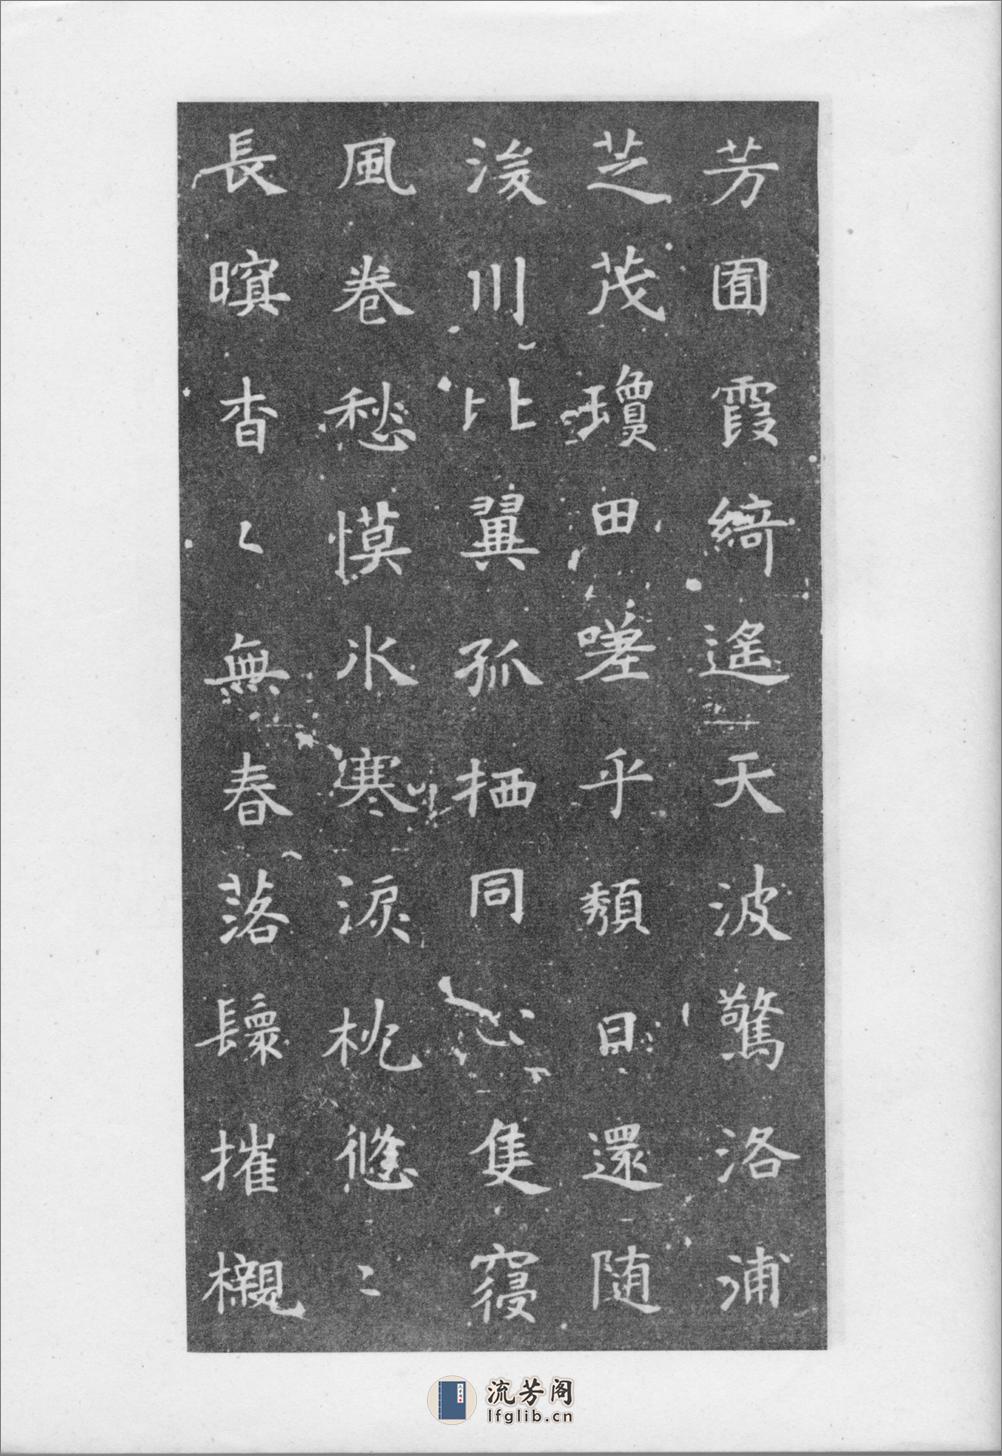 芳囿霞綺遙天波驚洛浦
芝茂瓊田嗟乎頹日還随
浚川比翼孤栖同心隻寑
風卷愁慔氷寒淚枕悠〻
長暝杳〻無春落長摧櫬
流芳阁
lfglib.cn